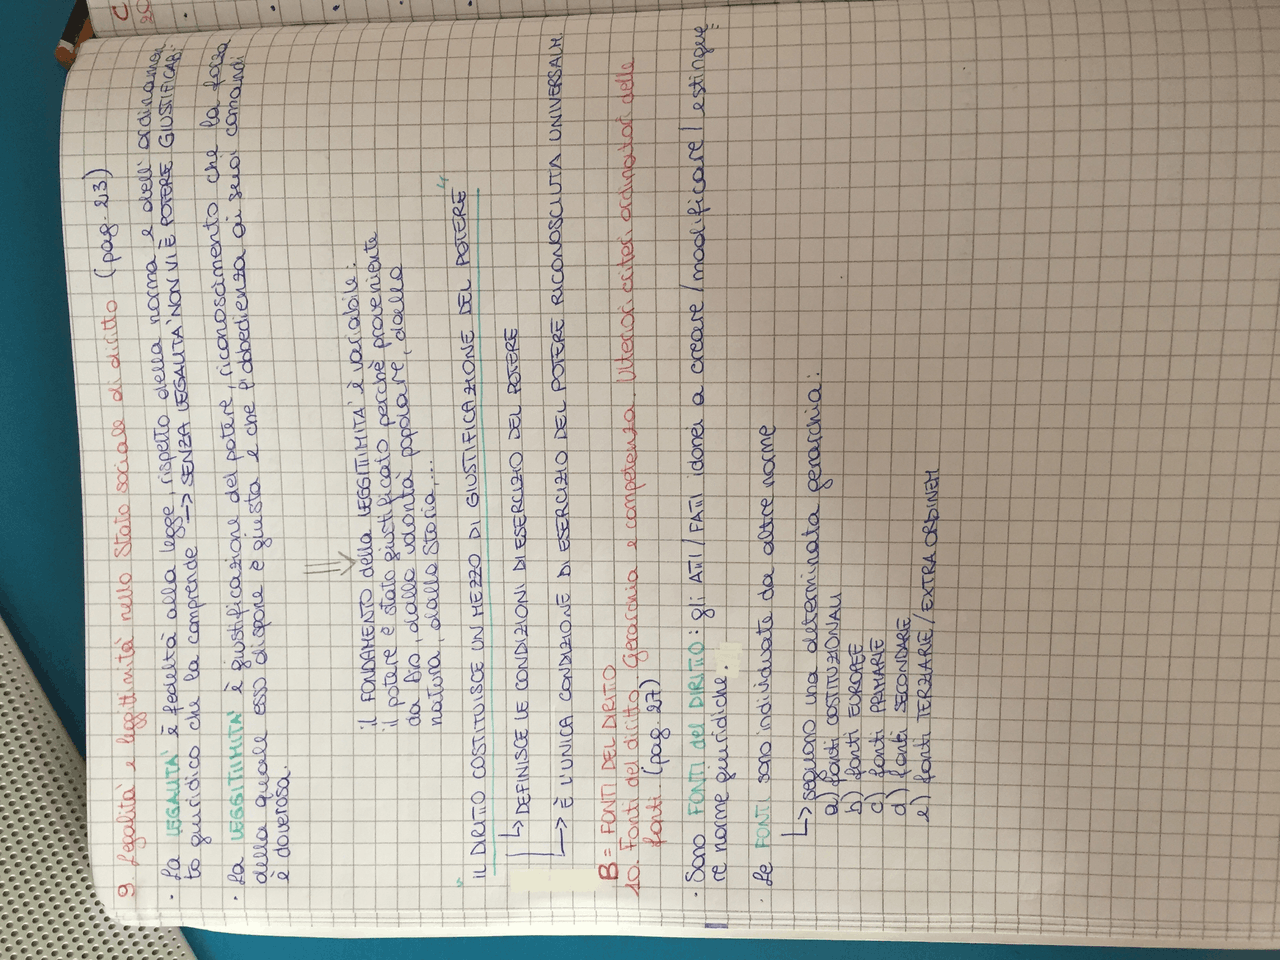 9. Legalità e leggittimità nello Stato sociale di diritto (pag. 23)
• La LEGALITA' è fedeltà alla legge, rispetto della norma e dell'ordinamen
to giuridico che la comprende → SENZA LEGALITA' NON VI È POTERE GIUSTIFICAB.
• La LEGGITTIMITA' è giustificazione del potere, riconoscimento che la forza
della quale esso dispone è giusta e che l'obbedienza ai suoi comandi
è doverosa.
il FONDAMENTO della LEGGITTIMITA' è variabile:
il potere è stato giustificato perchè proveniente
da Dio, dalla volontà popolare, dalla
natura, dalla Storia,...
"IL DIRITTO COSTITUISCE UN MEZZO DI GIUSTIFICAZIONE DEL POTERE"
↳ DEFINISCE LE CONDIZIONI DI ESERCIZIO DEL POTERE
↳ È L'UNICA CONDIZIONE DI ESERCIZIO DEL POTERE RICONOSCIUTA UNIVERSALM.
B = FONTI DEL DIRITTO
10. Fonti del diritto. Gerarchia e competenza. Ulteriori criteri ordinatori delle
fonti. (pag. 27)
• Sono FONTI del DIRITTO: gli ATTI/FATTI idonei a creare/modificare/estingue=
re norme giuridiche.
• Le FONTI sono individuate da altre norme
↳ seguono una determinata gerarchia:
a) fonti COSTITUZIONALI
b) fonti EUROPEE
c) fonti PRIMARIE
d) fonti SECONDARIE
e) fonti TERZIARIE/EXTRA ORDINEM